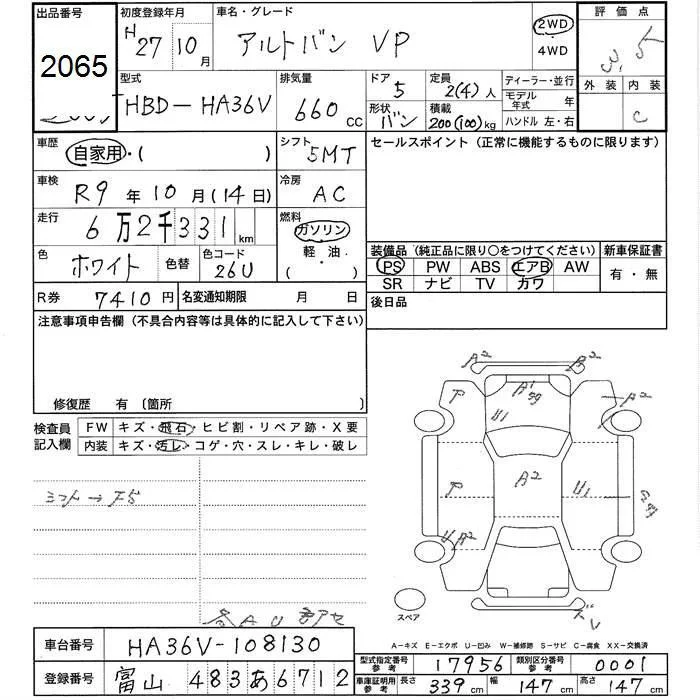 出品番号
2065
初度登録年月
H 27 10月
車名・グレード
アルトバン VP
2WD
4WD
評価点
3.5
外装 内装
C
型式
HBD-HA36V
排気量
660 CC
ドア
5
形状
バン
定員
2(4)人
積載
200(100)kg
ディーラー・並行
モデル年式 年
ハンドル 左・右
車歴
自家用・( )
シフト
5MT
セールスポイント（正常に機能するものに限ります）
車検
R9年10月(14日)
冷房
AC
走行
6万2千331km
燃料
ガソリン
軽・油・
( )
色
ホワイト
色替
色コード
26U
装備品（純正品に限り○をつけてください）
PS PW ABS エアB AW
SR ナビ TV カワ
新車保証書
有・無
R券 7410円
名変通知期限 月 日
後日品
注意事項申告欄（不具合内容等は具体的に記入して下さい）
修復歴 有〔箇所
検査員記入欄
FW キズ・飛石・ヒビ割・リペア跡・X要
内装 キズ・汚レ・コゲ・穴・スレ・キレ・破レ
A2 A2
A1
U1
A2
A2
U1
UA2
スペア
A-キズ E-エクボ U-凹み W-補修跡 S-サビ C-腐食 XX-交換済
車台番号 HA36V-108130
登録番号 富山 483あ6712
型式指定番号 参考 17956
類別区分番号 参考 0001
車庫証明用 参考 長さ 339cm 幅 147cm 高さ 147cm